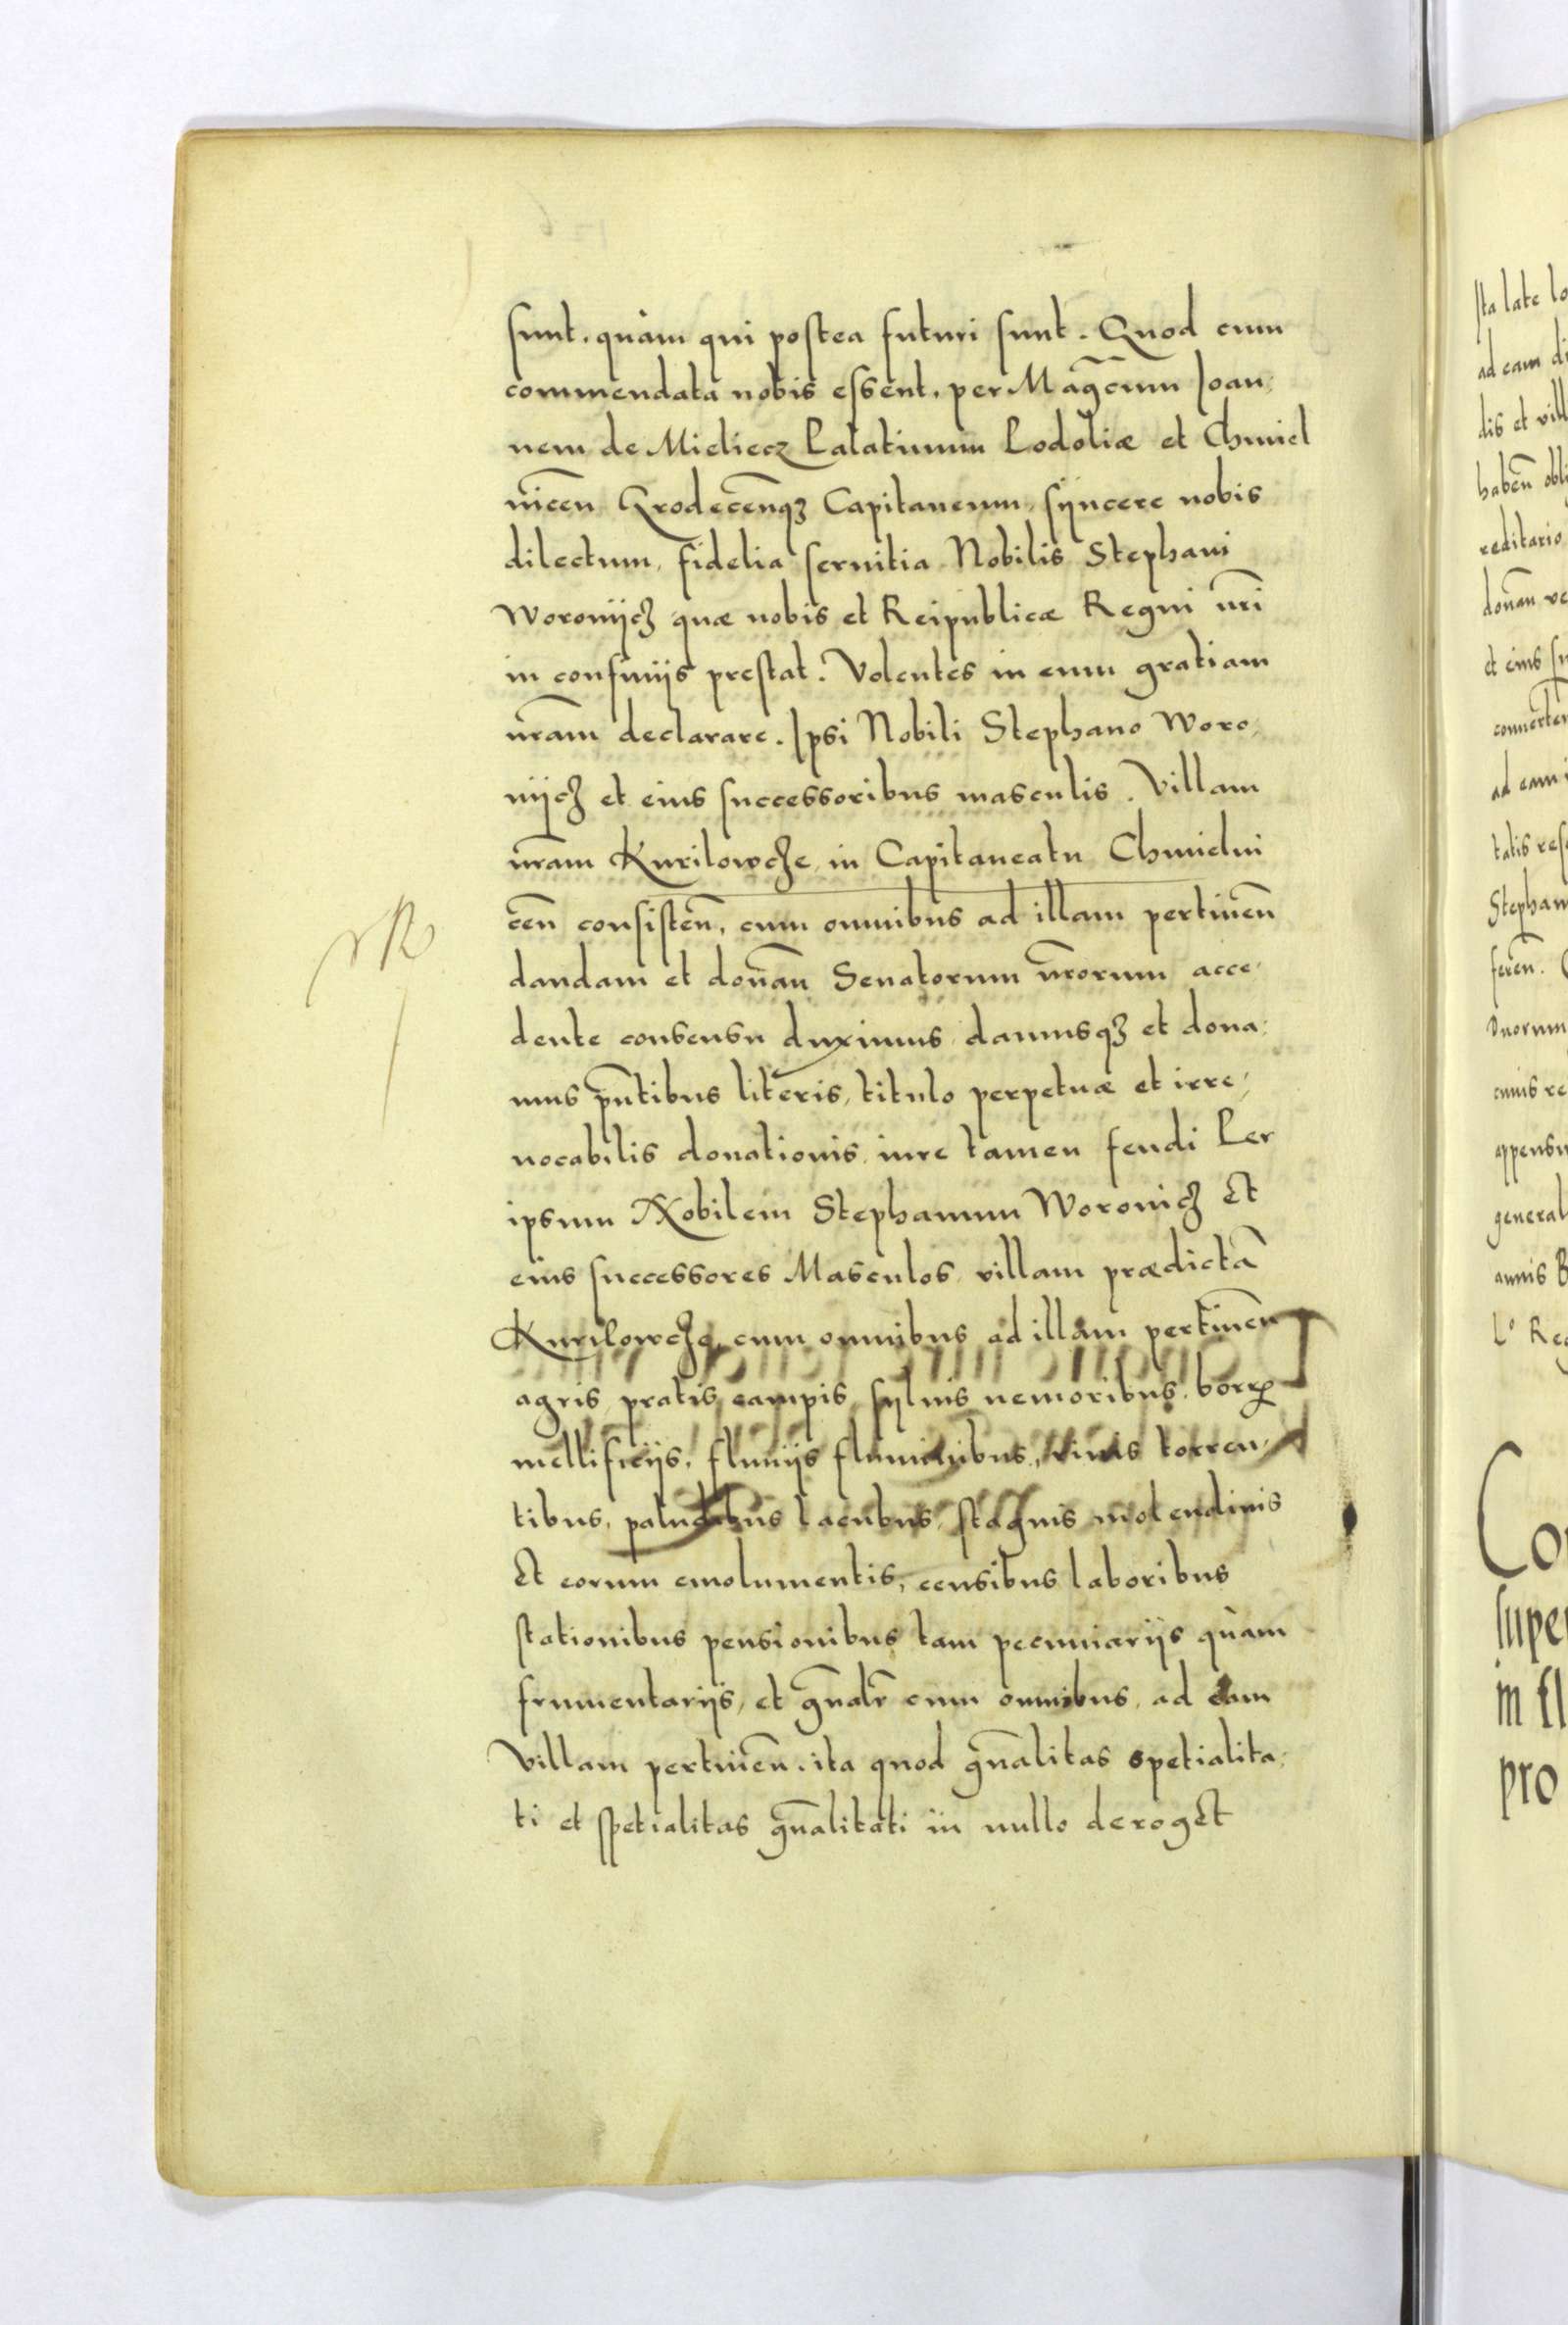 sunt, quàm qui postea futuri sunt. Quod cum
commendata nobis essent, per Magcum Joan,
nem de Mieliecz Palatinum Podoliæ et Chmiel
nicen̄ Grodecen̄qꝫ Capitaneum, syncere nobis
dilectum, fidelia seruitia Nobilis Stephani
Woronijcz quæ nobis et Reipublicæ Regni nr̄i
in confinijs prestat. Volentes in eum gratiam
nr̄am declarare. Ipsi Nobili Stephano Woro,
nijcz et eius successoribus masculis. Villam
nr̄am Kurilowcze, in Capitaneatu Chmielni
cen̄ consisten̄, cum omnibus ad illam pertinen̄
dandam et donan̄ Senatorum nr̄orum acce,
dente consensu duximus, damusqꝫ et dona,
mus pn̄tibus literis, titulo perpetuæ et irre,
uocabilis donationis iure tamen feudi Per
ipsum Nobilem Stephanum Woronicz Et
eius successores Masculos, villam prædictā
Kurilowcze, cum omnibus ad illam pertinen̄
agris, pratis, campis, syluis nemoribus, borr̄
mellificijs, fluuijs fluminibus, riuis torren,
tibus, paludibus lacubus, stagnis molendinis
Et eorum emolumentis, censibus laboribus
stationibus pensionibus tam pecuniarijs quàm
frumentarijs, et gn̄alr̄ cum omnibus, ad eam
Villam pertinen̄. ita quod gn̄alitas spetialita,
ti et spetialitas gn̄alitati in nullo deroget
sta late lo
ad eam di
dis et vill
haben̄ obli
reditario
donan̄ re
et eius su
ad eam i
tatis res
Stephan
feren̄.
Duorum
cuius re
appensu
general
annis
Lo Reg
Co
super
in fl
pro